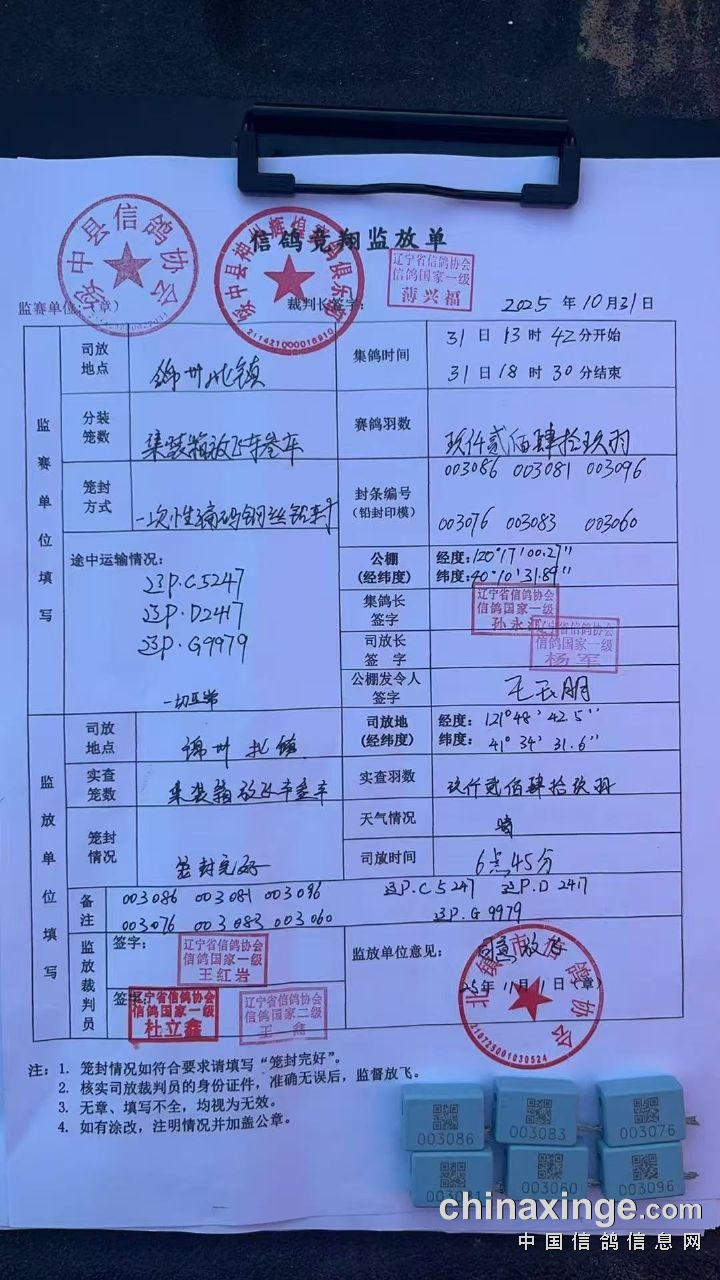 信鸽竞翔监放单
绥中县信鸽协会
绥中县神州辉煌赛鸽俱乐部
211421000016910
辽宁省信鸽协会
信鸽国家一级
薄兴福
监赛单位:(章)
裁判长签字:
2025 年 10 月 31 日
监赛单位填写
司放地点
锦州北镇
集鸽时间
31 日 13 时 42 分开始
31 日 18 时 30 分结束
分装笼数
集装箱放飞车叁车
赛鸽羽数
玖仟贰佰肆拾玖羽
笼封方式
一次性编码钢丝铅封
封条编号
(铅封印模)
003086 003081 003096
003076 003083 003060
途中运输情况:
辽P.C5247
辽P.D2417
辽P.G9979
一切正常
公棚
(经纬度)
经度:120°17′00.27″
纬度:40°10′31.89″
集鸽长签字
辽宁省信鸽协会
信鸽国家一级
司放长签字
辽宁省信鸽协会
信鸽国家一级
杨军
公棚发令人签字
监放单位填写
司放地点
锦州北镇
司放地
(经纬度)
经度: 121°48′42.5″
纬度: 41°34′31.6″
实查笼数
集装箱放飞车叁车
实查羽数
玖仟贰佰肆拾玖羽
笼封情况
笼封完好
天气情况
晴
司放时间
6点45分
备注
003086 003081 003096 辽P.C5247 辽P.D2417
003076 003083 003060 辽P.G9979
监放裁判员
签字:
辽宁省信鸽协会
信鸽国家一级
王红岩
签字:
辽宁省信鸽协会
信鸽国家一级
杜立鑫
辽宁省信鸽协会
信鸽国家二级
监放单位意见:
同意放飞
25年11月1日(章)
北镇市信鸽协会
210725001030524
注: 1. 笼封情况如符合要求请填写“笼封完好”。
2. 核实司放裁判员的身份证件,准确无误后,监督放飞。
3. 无章、填写不全,均视为无效。
4. 如有涂改,注明情况并加盖公章。
003086 003083 003076
003060 003096
chinaxinge.com
中国信鸽信息网